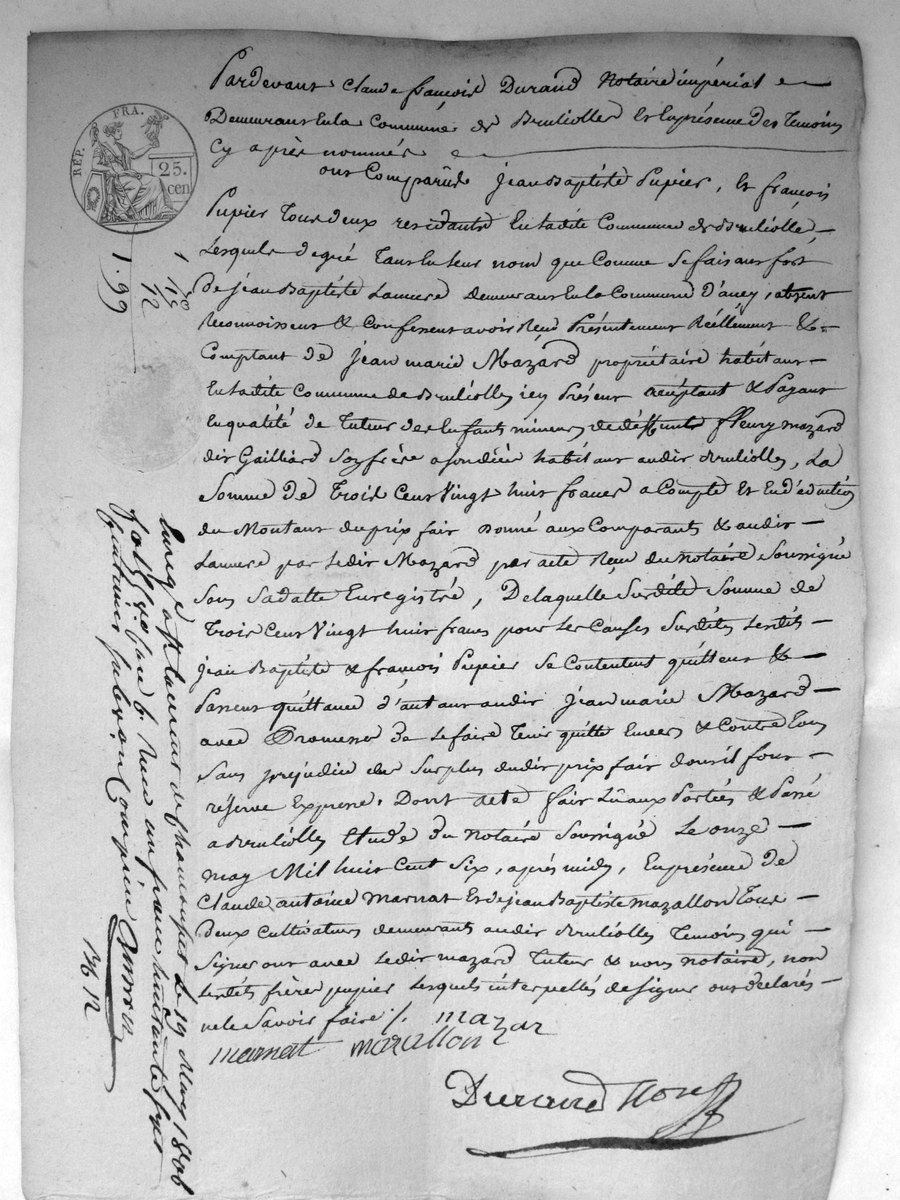 RÉP. FRA.
25. cen
Pardevant Claude françois Durand Notaire impérial
Demeurant En la Commune de Brulliolles Et En présence des Temoins
Cy après nommés
ont Comparûs Jean Baptiste Pupier, Et françois
Pupier Tous deux residants En ladite Commune de Brulliolle,
Lesquels de gré Tant En leur nom que Comme se faisant fort
De jean Baptiste Lamure demeurant En la Commune D'ancy, absent
Reconnoissent & Confessent avoir Reçu Présentement Réellement &
Comptant de jean marie Mazard propriétaire habitant
En ladite Commune de Brulliolles icy Présent acceptant & Payant
En qualité de Tuteur des Enfants mineurs de deffunt fleury mazard
dit Gailliard Son frère habitant audit Brulliolles, La
Somme de Trois Cent Vingt huit francs a Compte Et En déduction
du Montant du prix fait donné aux Comparants & audit
Lamure par ledit Mazard par acte Reçu du Notaire Soussigné
Sous Sa datte Enregistré, De laquelle Surdite Somme de
Trois Cent Vingt huit francs pour les Causes Surdites lesdits
jean Baptiste & françois Pupier Se Contentent quittent &
Passent quittance d'autant audit Jean marie Mazard
avec Promesse de le faire Tenir quitte Envers & Contre Tous
Sans préjudice du Surplus dudit prix fait dont il font
réserve Expresse. Dont acte fait Lû aux Parties & Passé
a Brulliolles Etude du Notaire Soussigné Le onze
may Mil huit Cent Six, après midy, En présence de
Claude antoine Marnat Et de jean Baptiste mazallon Tous
Deux Cultivateurs demeurants audit Brulliolles Temoins qui
Signeront avec ledit mazard Tuteur & nous notaire, non
lesdits frère pupier lesquels interpellés de signer ont déclarés
ne le Savoir faire /.
mazar
marnat mazallon
Durand Nore
1
12
1.99
Enreg.é à St Laurent de Chamousset Le 19 May 1806
fol. Reçu un franc
centimes Subvention Comprise